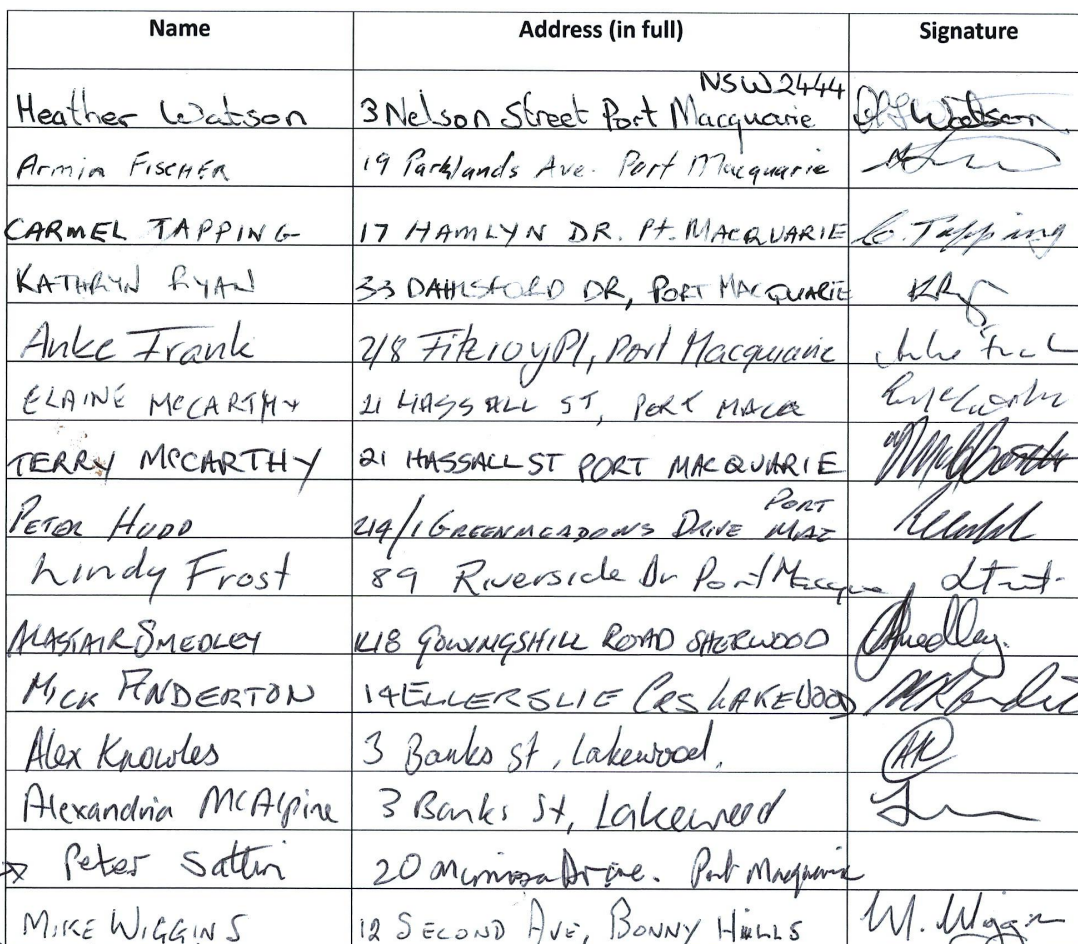 Name Address (in full) Signature
NSW 2444
Heather Watson 3 Nelson Street Port Macquarie Watson
Armin FISCHER 19 Parklands Ave. Port Macquarie
CARMEL TAPPING 17 HAMLYN DR. Pt. MACQUARIE C. Tapping
KATHRYN RYAN 33 DAHLSFORD DR, PORT MACQUARIE KRy
Anke Frank 2/8 Fitzroy Pl, Port Macquarie
ELAINE MCCARTHY 21 HASSALL ST, PORT MACQ
TERRY MCCARTHY 21 HASSALL ST PORT MACQUARIE
PORT
PETER HUDD 214/1 GREENMEADOWS DRIVE
Lindy Frost 89 Riverside Dr Port Macquarie
ALASTAIR SMEDLEY GOWINGSHILL ROAD SHERWOOD Smedley.
MICK ANDERTON 14 ELLERSLIE CRS LAKEWOOD
Alex Knowles 3 Banks St, Lakewood. AK
Alexandria McAlpine 3 Banks St, Lakewood
Peter 20 Mimosa Drive. Port Macquarie
MIKE WIGGINS 12 SECOND AVE, BONNY HILLS M. Wiggins